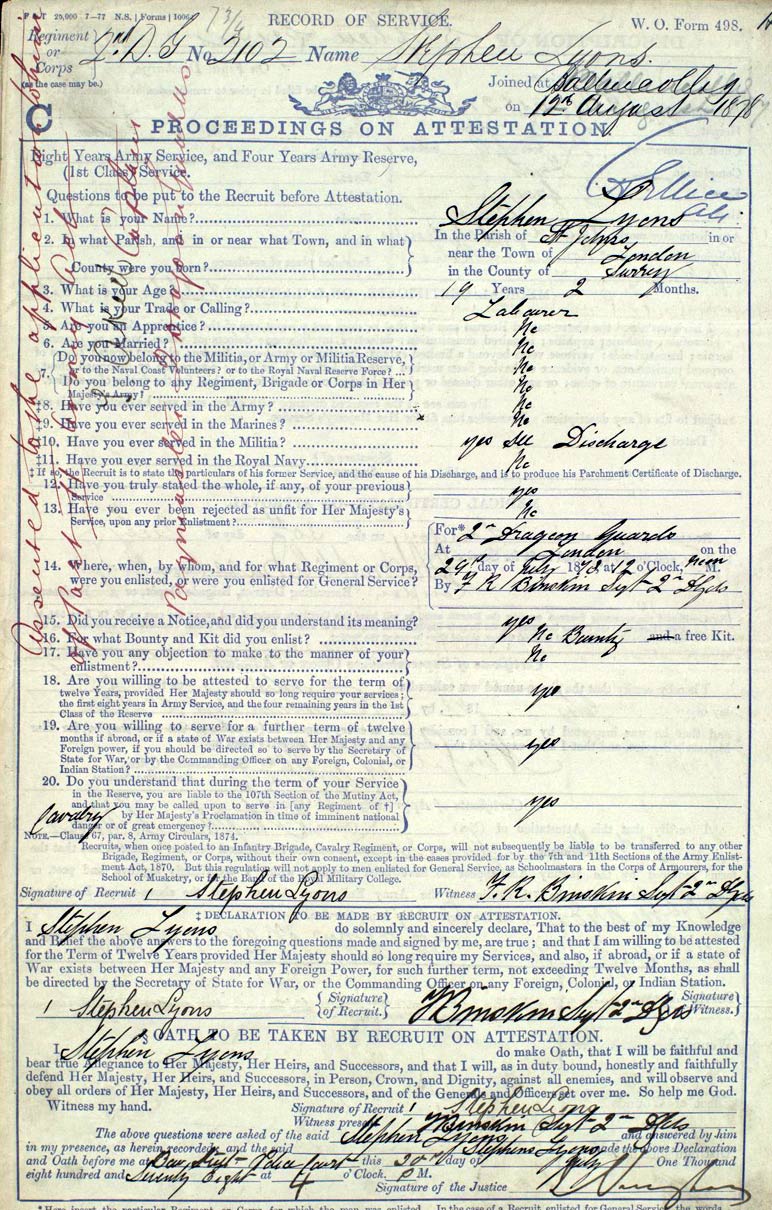 P & T 25,000 7—77 N.S. | Forms | 1006
RECORD OF SERVICE.
W. O. Form 498.
Regiment or Corps 2nd D. G No 2102 Name Stephen Lyons.
(as the case may be.)
Joined at
on 12th August 1878
PROCEEDINGS ON ATTESTATION
Eight Years Army Service, and Four Years Army Reserve,
(1st Class) Service.
Questions to be put to the Recruit before Attestation.
1. What is your Name? Stephen Lyons
2. In what Parish, and in or near what Town, and in what County were you born?
In the Parish of in or
near the Town of London
in the County of Surrey
3. What is your Age? 19 Years 2 Months.
4. What is your Trade or Calling? Labourer
5. Are you an Apprentice? No
6. Are you Married? No
7. Do you now belong to the Militia, or Army or Militia Reserve,
or to the Naval Coast Volunteers? or to the Royal Naval Reserve Force? No
Do you belong to any Regiment, Brigade or Corps in Her
Majesty's Army? No
‡8. Have you ever served in the Army? No
‡9. Have you ever served in the Marines? No
‡10. Have you ever served in the Militia? yes See Discharge
‡11. Have you ever served in the Royal Navy No
‡ If so, the Recruit is to state the particulars of his former Service, and the cause of his Discharge, and is to produce his Parchment Certificate of Discharge.
12. Have you truly stated the whole, if any, of your previous
Service yes
13. Have you ever been rejected as unfit for Her Majesty's
Service, upon any prior Enlistment? No
14. Where, when, by whom, and for what Regiment or Corps,
were you enlisted, or were you enlisted for General Service?
For* 2n Dragoon Guards
At London on the
29th day of July 1878 at 12 o'Clock, noon M.
By F K Binskin Sgt 2n Dgds
15. Did you receive a Notice, and did you understand its meaning? yes
16. For what Bounty and Kit did you enlist? No Bounty and a free Kit.
17. Have you any objection to make to the manner of your
enlistment? No
18. Are you willing to be attested to serve for the term of
twelve Years, provided Her Majesty should so long require your services;
the first eight years in Army Service, and the four remaining years in the 1st
Class of the Reserve yes
19. Are you willing to serve for a further term of twelve
months if abroad, or if a state of War exists between Her Majesty and any
Foreign power, if you should be directed so to serve by the Secretary of
State for War, or by the Commanding Officer on any Foreign, Colonial, or
Indian Station? yes
20. Do you understand that during the term of your Service
in the Reserve, you are liable to the 107th Section of the Mutiny Act,
and that you may be called upon to serve in [any Regiment of †]
Cavalry by Her Majesty's Proclamation in time of imminent national
danger or of great emergency? yes
NOTE.—Clause 67, par. 8, Army Circulars, 1874.
Recruits, when once posted to an Infantry Brigade, Cavalry Regiment, or Corps, will not subsequently be liable to be transferred to any other
Brigade, Regiment, or Corps, without their own consent, except in the cases provided for by the 7th and 11th Sections of the Army Enlist-
ment Act, 1870. But this regulation will not apply to men enlisted for General Service, as Schoolmasters, in the Corps of Armourers, for the
School of Musketry, or for the Band of the Royal Military College.
Signature of Recruit Stephen Lyons Witness F. K. Binskin Sgt 2n Dgds
‡ DECLARATION TO BE MADE BY RECRUIT ON ATTESTATION.
I Stephen Lyons do solemnly and sincerely declare, That to the best of my Knowledge
and Belief the above answers to the foregoing questions made and signed by me, are true; and that I am willing to be attested
for the Term of Twelve Years provided Her Majesty should so long require my Services, and also, if abroad, or if a state of
War exists between Her Majesty and any Foreign Power, for such further term, not exceeding Twelve Months, as shall
be directed by the Secretary of State for War, or the Commanding Officer on any Foreign, Colonial, or Indian Station.
Stephen Lyons {Signature of Recruit.} Binskin Sgt 2n Dgds {Signature of Witness.}
§ OATH TO BE TAKEN BY RECRUIT ON ATTESTATION.
I Stephen Lyons do make Oath, that I will be faithful and
bear true Allegiance to Her Majesty, Her Heirs, and Successors, and that I will, as in duty bound, honestly and faithfully
defend Her Majesty, Her Heirs, and Successors, in Person, Crown, and Dignity, against all enemies, and will observe and
obey all orders of Her Majesty, Her Heirs, and Successors, and of the Generals and Officers set over me. So help me God.
Witness my hand. Signature of Recruit Stephen Lyons
Witness present Binskin Sgt 2n Dgds
The above questions were asked of the said Stephen Lyons and answered by him
in my presence, as herein recorded, and the said Stephens Lyons made the above Declaration
and Oath before me at Bow Street Police Court this 30th day of July One Thousand
eight hundred and Seventy Eight at 4 o'Clock, P M.
Signature of the Justice
Assented to the application